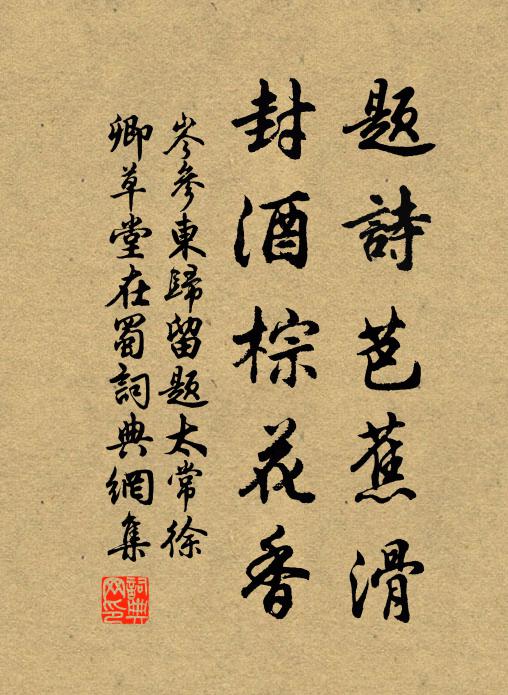 題詩芭蕉滑
封酒棕花香
岑參東歸留題太常徐
卿草堂在蜀詞典網集
詞典網印